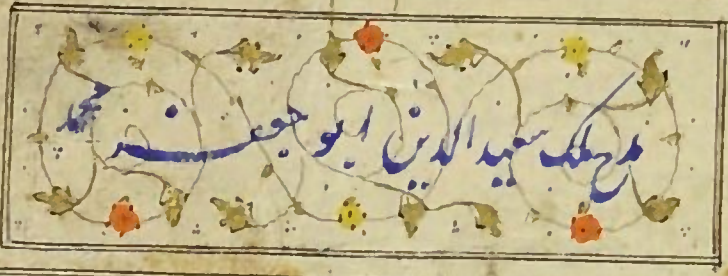 مدح ملک سعید الدین ابو جعفر محمد